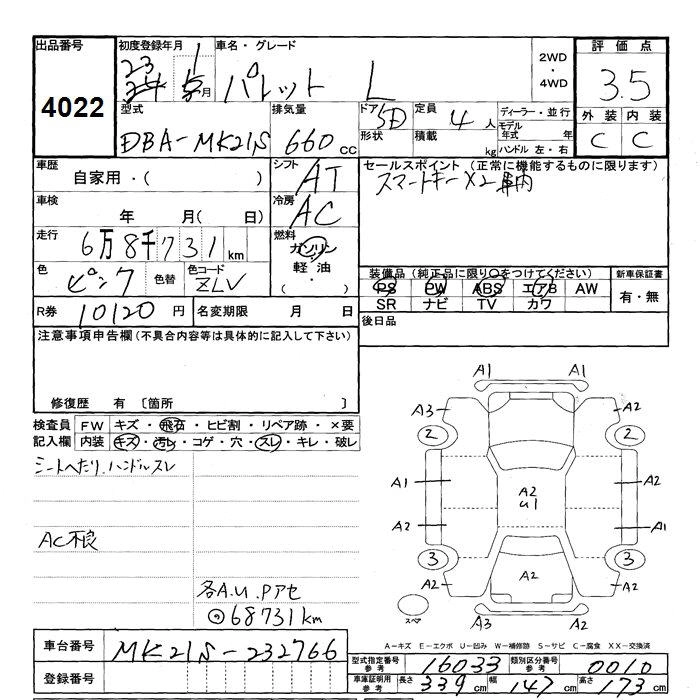 出品番号
4022
初度登録年月
23
1
月
車名・グレード
パレット L
2WD
・
4WD
評価点
3.5
外装 内装
C C
型式
DBA-MK21S
排気量
660 cc
ドア 5D
形状
定員 4 人
積載 kg
ディーラー・並行
モデル年式 年
ハンドル 左・右
車歴
自家用・( )
シフト
AT
セールスポイント (正常に機能するものに限ります)
スマートキーX2 車内
車検
年 月( 日)
冷房
AC
走行
6万8千731 km
燃料
ガソリン
軽油・
( )
色
ピンク
色替
色コード
ZLV
装備品 (純正品に限り○をつけてください)
PS PW ABS エアB AW
SR ナビ TV カワ
新車保証書
有・無
R券 10120 円
名変期限 月 日
後日品
注意事項申告欄(不具合内容等は具体的に記入して下さい)
修復歴 有 〔箇所 〕
検査員記入欄
FW キズ・飛石・ヒビ割・リペア跡・×要
内装 キズ・汚レ・コゲ・穴・スレ・キレ・破レ
シートヘたり、ハンドルスレ
AC不良
各A.U.Pアセ
68731km
A1 A1
A3 A2
2 2
A1
A2
U1
A2 A1
3 3
A2 A2 A2
A2 A2
スペア
A-キズ E-エクボ U-凹み W-補修跡 S-サビ C-腐食 XX-交換済
車台番号 MK21S-232766
登録番号
型式指定番号 参考 16033
類別区分番号 参考 0010
車庫証明用 参考 長さ 339 cm 幅 147 cm 高さ 173 cm